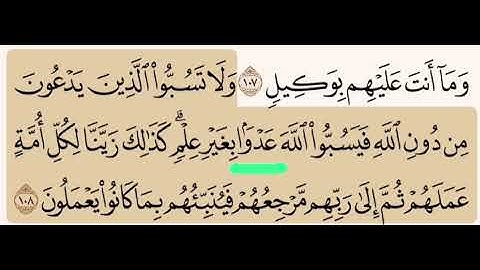 وَمَآ أَنتَ عَلَيْهِم بِوَكِيلٍ ١٠٧ وَلَا تَسُبُّوا۟ ٱلَّذِينَ يَدْعُونَ
مِن دُونِ ٱللَّهِ فَيَسُبُّوا۟ ٱللَّهَ عَدْوًۢا بِغَيْرِ عِلْمٍۗ كَذَٰلِكَ زَيَّنَّا لِكُلِّ أُمَّةٍ
عَمَلَهُمْ ثُمَّ إِلَىٰ رَبِّهِم مَّرْجِعُهُمْ فَيُنَبِّئُهُم بِمَا كَانُوا۟ يَعْمَلُونَ ١٠٨